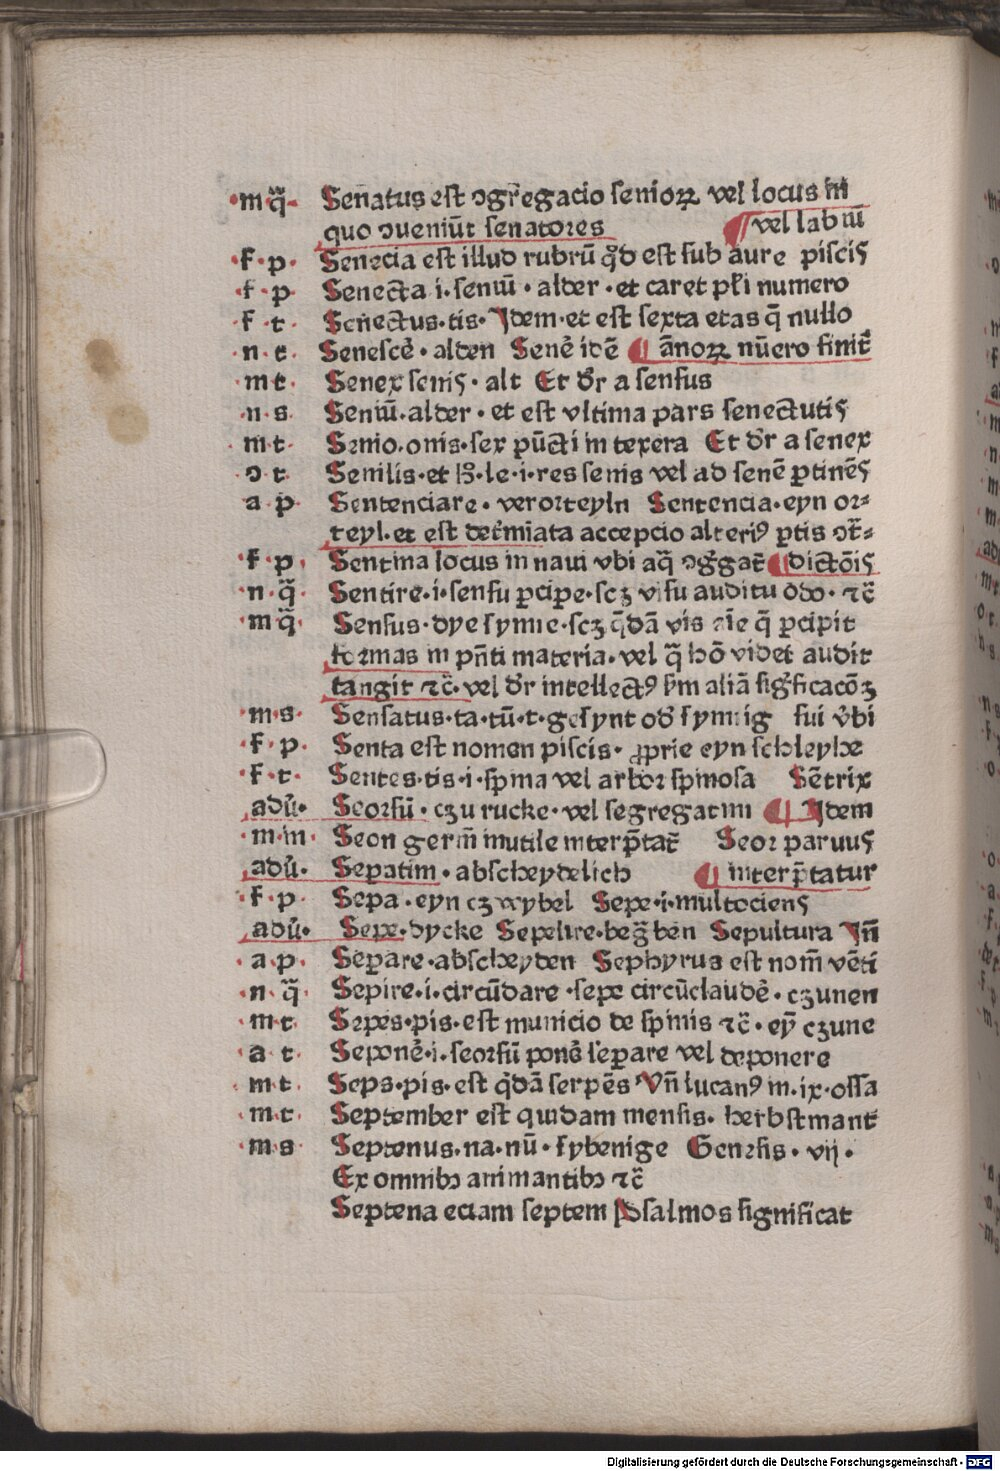 ·m q̃· Senatus est ꝯgregacio senioꝝ vel locus in
quo ꝯueniūt senatores ¶ vel labiū
·f·p· Senecia est illud rubrū qd̓ est sub aure piscis
·f·p Senecta i·seniū·alder·et caret pl̓i numero
f·t· Senectus·tis·Idem·et est sexta etas q̄ nullo
·n·t· Senescē·alden Senē idē ¶ ānoꝝ nūero finit᷑
·m t· Senex senis·alt Et dr̄ a sensus
·n·s· Seniū·alder·et est vltima pars senectutis
m·t· Senio·onis·sex pūcti in texera Et dr̄ a senex
·ɔ·t· Senilis·et h̓·le·i·res senis vel ad senē ꝑtinēs
a·p· Sentenciare·verorteyln Sentencia·eyn or⸗
teyl·et est det̓miata accepcio alteriꝰ ꝑtis ꝯt̓⸗
·f·p· Sentina locus in naui vbi aq̄ ꝯg̓gat᷑ ¶ dictōis
·n·q̃· Sentire·i·sensu ꝑcipe·scꝫ visu auditu odo·⁊c̄
·m q̃· Sensus·dye synne·scꝫ q̄dā vis aīe q̄ ꝑcipit
formas in pn̄ti materia·vel q̄ hō videt audit
tangit ⁊c̄·vel dr̄ intellectꝰ ẜm aliā sig̓ficacōꝫ
·m·s· Sensatus·ta·tū·t·gesynt od̓ synnig sui v̓bi
·f·p· Senta est nomen piscis·ꝓprie eyn schleyhe
·f·t· Sentes·tis·i·spina vel arbor spinosa Sētrix
adū̓· Seorsū·czu rucke·vel segregatim ¶ Idem
·m·m· Seon germ̄ inutile interp̄tat᷑ Seor paruus
adū̓· Sepatim·abscheydelich ¶ interp̄tatur
·f·p· Sepa·eyn czwybel Sepe·i·multociens
adū̓· Sepe·dycke Sepelire·beg̓ben Sepultura Iñ
·a·p· Seꝑare·abscheyden Sephyrus est nom̄ vēti
·n·q̃· Sepire·i·circūdare·sepe circūclaudē·czunen
·m·t· Sepes·pis·est municio de spinis ⁊c̄·eȳ czune
·a·t· Seponē·i·seorsū ponē seꝑare vel deponere
·m t· Seps·pis·est q̄dā serpēs Vñ lucanꝰ in·ix·ossa
·m·t· September est quidam mensis·herbstmant
·m s· Septenus·na·nū·sybenige Genesis·vij·
Ex omnibꝰ animantibꝰ ⁊c̄
Septena eciam septem Psalmos significat
Digitalisierung gefördert durch die Deutsche Forschungsgemeinschaft - DFG